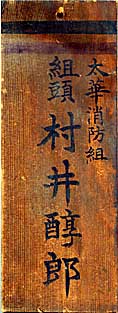 太華消防組
組頭 村井醇郎